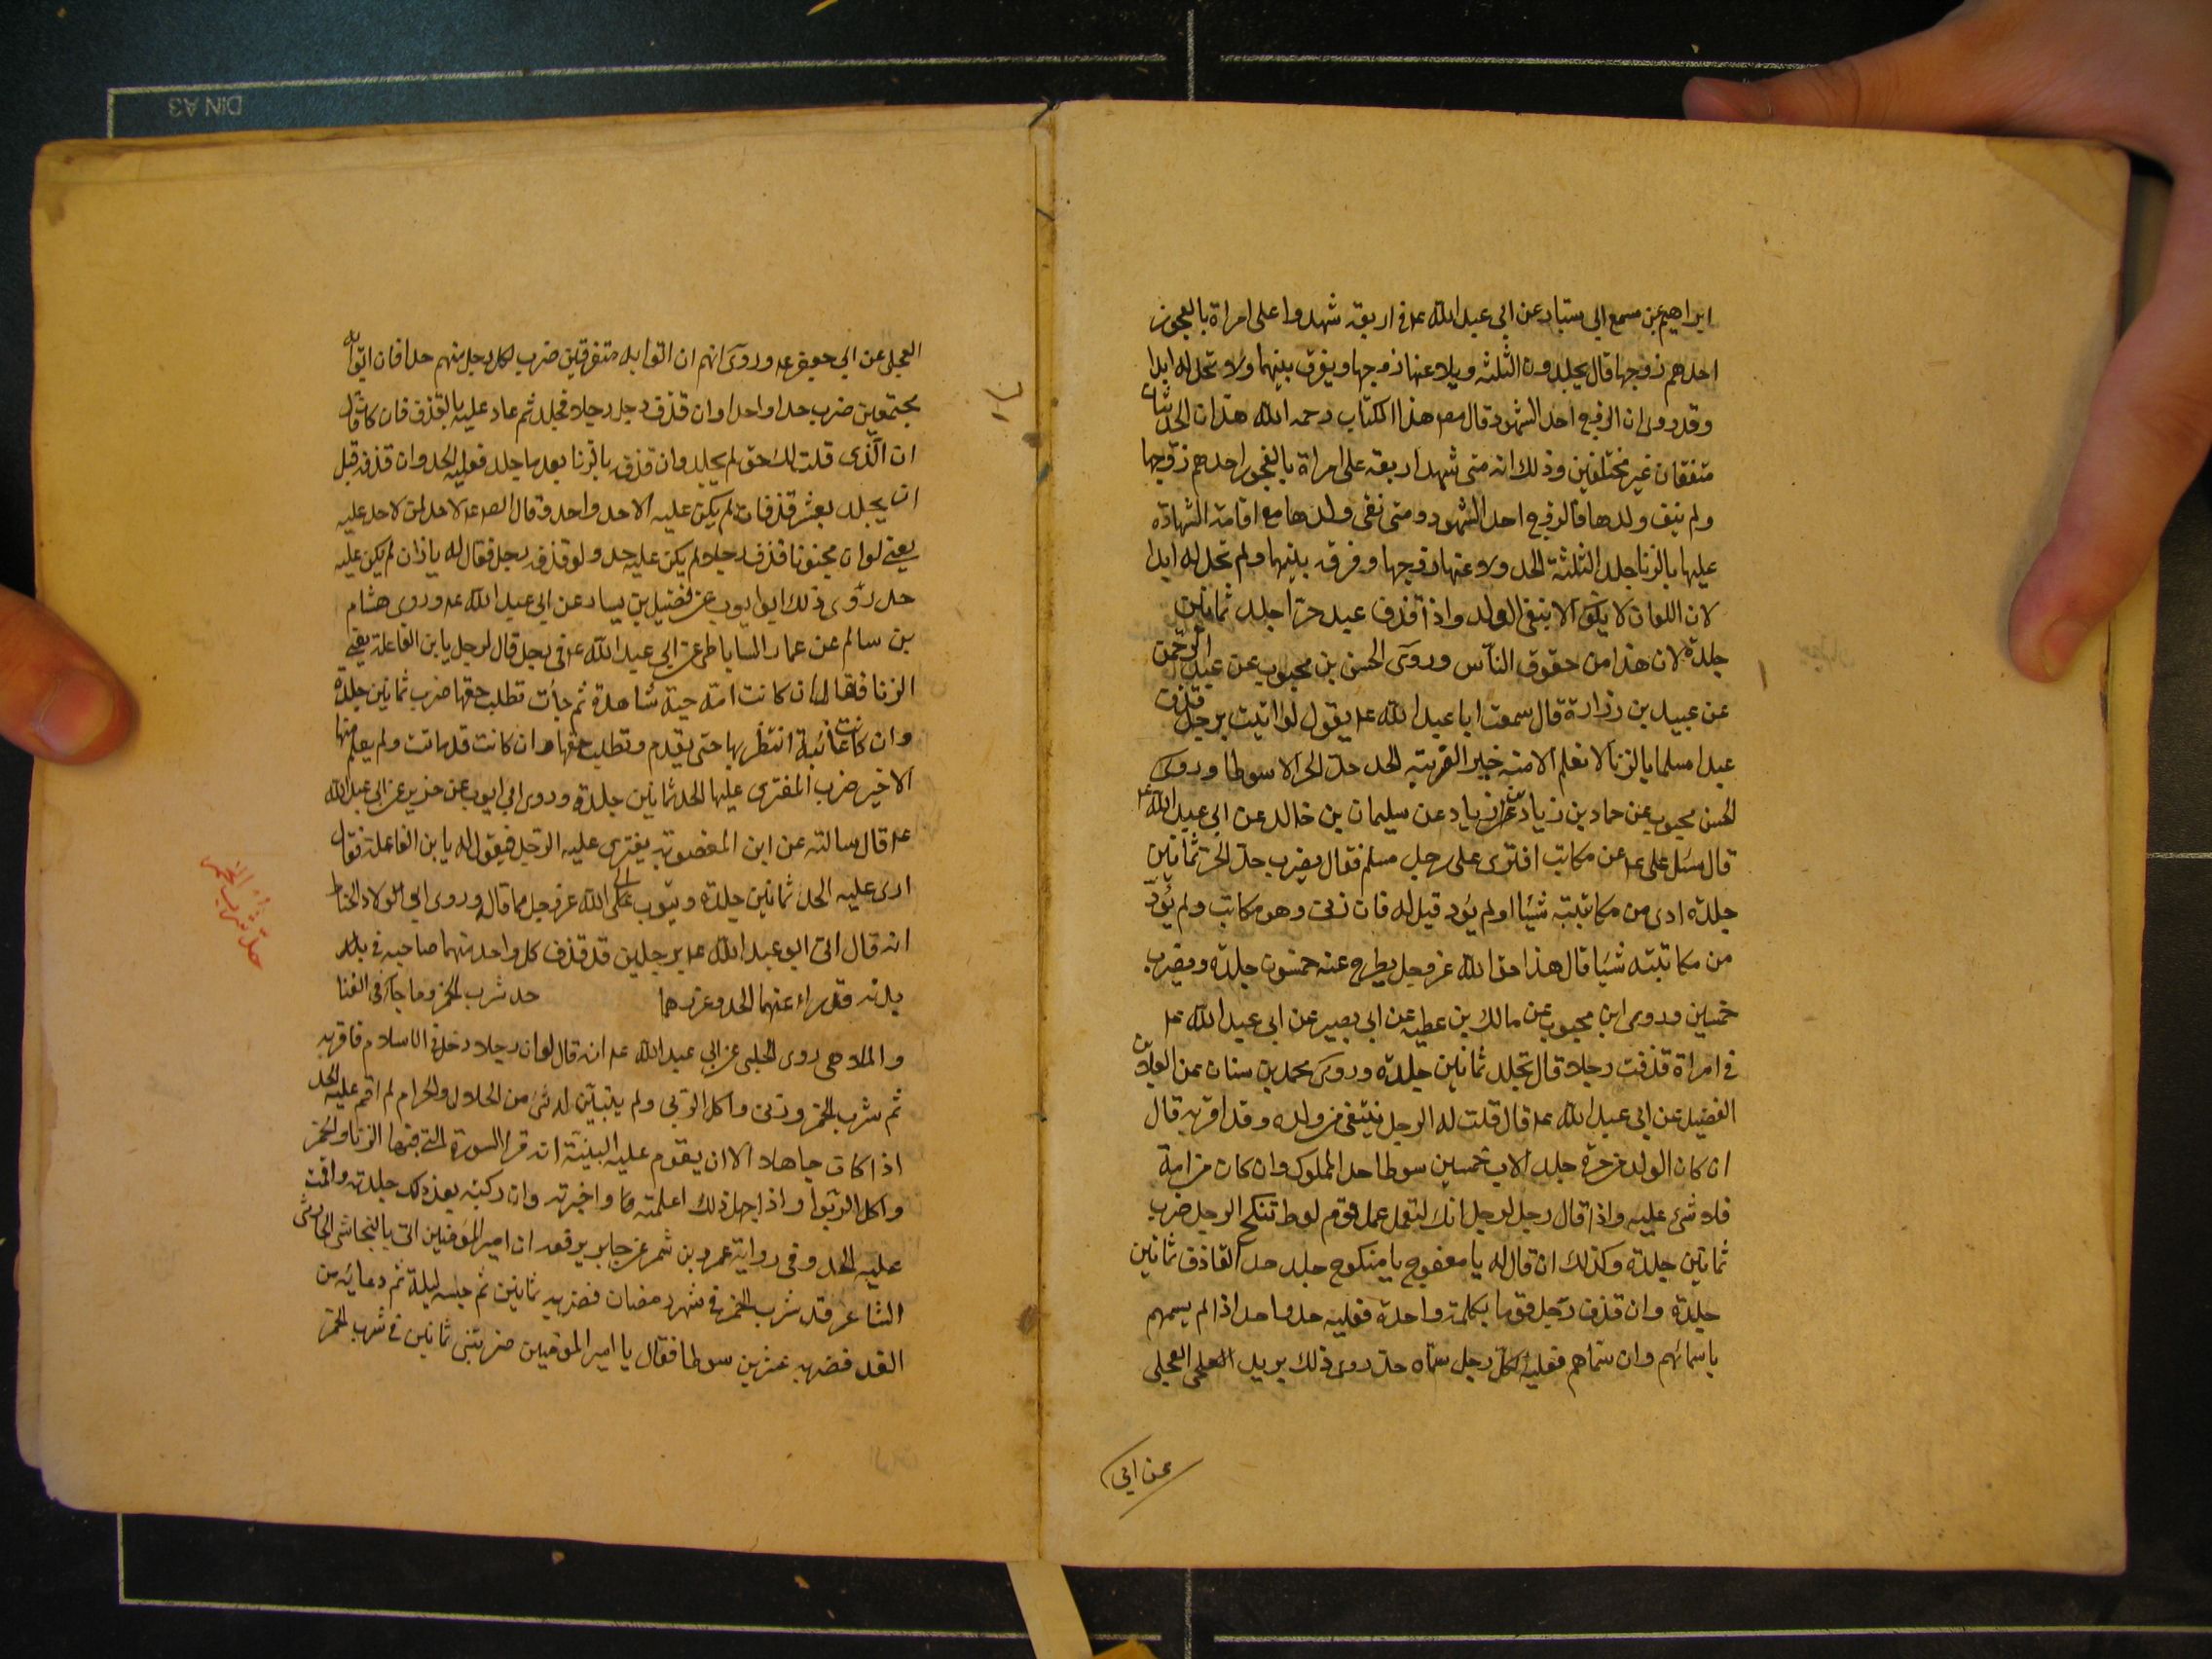 ابراهيم عن مسمع ابي ستار عن ابي عبد الله عم في اربعة شهدوا على امراة بالفجور
احدهم زوجها قال يجلدون الثلثه ويلاعنها زوجها ويفرق بينهما ولا تحل له ابدا
وقد روى ان الزوج احد الشهود قال مصـ هذا الكتاب رحمه الله هذان الحديثان
متفقان غير مختلفين وذلك انه متى شهد اربعة على امراة بالفجور احدهم زوجها
ولم ينف ولدها فالزوج احد الشهود ومتى نفى ولدها مع اقامة الشهادة
عليها بالزنا جلد الثلثة الحد ولاعنها زوجها وفرق بينهما ولم تحل له ابدا
لان اللعان لا يكون الا بنفى الولد واذا قذف عبد حرا جلد ثمانين
جلدة لان هذا من حقوق الناس وروى الحسن بن محبوب عن عبد الرحمن
عن عبيد بن زرارة قال سمعت ابا عبد الله عم يقول لو اتيت برجل قذف
عبدا مسلما بالزنا لا نعلم الا منه خيرا لضربته الحد حد الحر الا سوطا وروى
الحسن محبوب عن حماد بن زياد عن زياد عن سليمان بن خالد عن ابي عبد الله عم
قال سئل على عم عن مكاتب افترى على رجل مسلم فقال يضرب حد الحر ثمانين
جلدة ادى من مكاتبته شيئا او لم يؤد قيل له فان زنى وهو مكاتب ولم يؤد
من مكاتبته شيئا قال هذا حق الله عز وجل يطرح عنه خمسون جلدة ويضرب
خمسين وروى ابن محبوب عن مالك بن عطيه عن ابي بصير عن ابي عبد الله عم
في امراة قذفت رجلا قال تجلد ثمانين جلدة وروى محمد بن سنان عن العلا بن
الفضيل عن ابي عبد الله عم قال قلت له الرجل ينتفى من ولده وقد اقر به قال
ان كان الولد من حرة جلد الاب خمسين سوطا حد المملوك وان كان من امة
فلا شئ عليه واذا قال رجل لرجل انك لتعمل عمل قوم لوط تنكح الرجل ضرب
ثمانين جلدة وكذلك ان قال له يا معفوج يا منكوح جلد حد القاذف ثمانين
جلدة وان قذف رجل قوما بكلمة واحدة فعليه حد واحد اذا لم يسمهم
باسمائهم وان سماهم فعليه لكل رجل سماه حد روى ذلك بريد العجلى
عن ابي
العجلى عن ابي جعفر عم وروى انهم ان اتوا به متفرقين ضرب لكل رجل منهم حدا فان اتوا به
مجتمعين ضرب حدا واحدا وان قذف رجل رجلا فجلد ثم عاد عليه بالقذف فان كان قال
ان الذى قلت لك حق لم يجلد وان قذفه بالزنا بعد ما جلد فعليه الحد وان قذفه قبل
ان يجلد بعشر قذفات لم يكن عليه الا حد واحد وقال الصـ عم لا حد لمن لا حد عليه
يعنى لو ان مجنونا قذف رجلا لم يكن عليه حد ولو قذفه رجل فقال له يا زان لم يكن عليه
حد روى ذلك ابو ايوب عن فضيل بن يسار عن ابي عبد الله عم وروى هشام
بن سالم عن عمار الساباطى عن ابي عبد الله عم في رجل قال لرجل يا بن الفاعلة يعنى
الزنا فقال ان كانت امه حية شاهدة ثم جأت تطلب حقها ضرب ثمانين جلدة
وان كانت غائبة انتظر بها حتى يقدم وتطلب حقها وان كانت قد ماتت ولم يعلم منها
الا خير ضرب المفترى عليها الحد ثمانين جلدة وروى ابي ايوب عن حريز عن ابي عبد الله
عم قال سالته عن ابن المغصوبه يفترى عليه الرجل فيقول له يا بن الفاعلة فقال
ارى عليه الحد ثمانين جلدة ويتوب الى الله عز وجل مما قال وروى ابي الولاد الحناط
انه قال اتى ابو عبد الله عم برجلين قد قذف كل واحد منهما صاحبه في بدنه
بدنه فدراء عنهما الحد وعزرهما حد شرب الخمر وما جآء في الغنا
والملاهى روى الحلبى عن ابي عبد الله عم انه قال لو ان رجلا دخل في الاسلام فاقر به
ثم شرب الخمر وزنى واكل الربى ولم يتبين له شئ من الحلال والحرام لم اقم عليه الحد
اذا كان جاهلا الا ان يقوم عليه البينة انه قرا السورة التى فيها الزنا والخمر
واكل الربوا واذا جهل ذلك اعلمته واخبرته وان ركبه بعد ذلك جلدته واقمت
عليه الحد وفى رواية عمرو بن شمر عن جابر يرفعه ان امير المؤمنين اتى بالنجاشى الحارثى
الشاعر قد شرب الخمر في شهر رمضان فضربه ثمانين ثم حبسه ليلة ثم دعا به من
الغد فضربه عشرين سوطا فقال يا امير المؤمنين ضربتنى ثمانين في شرب الخمر
حد شرب الخمر